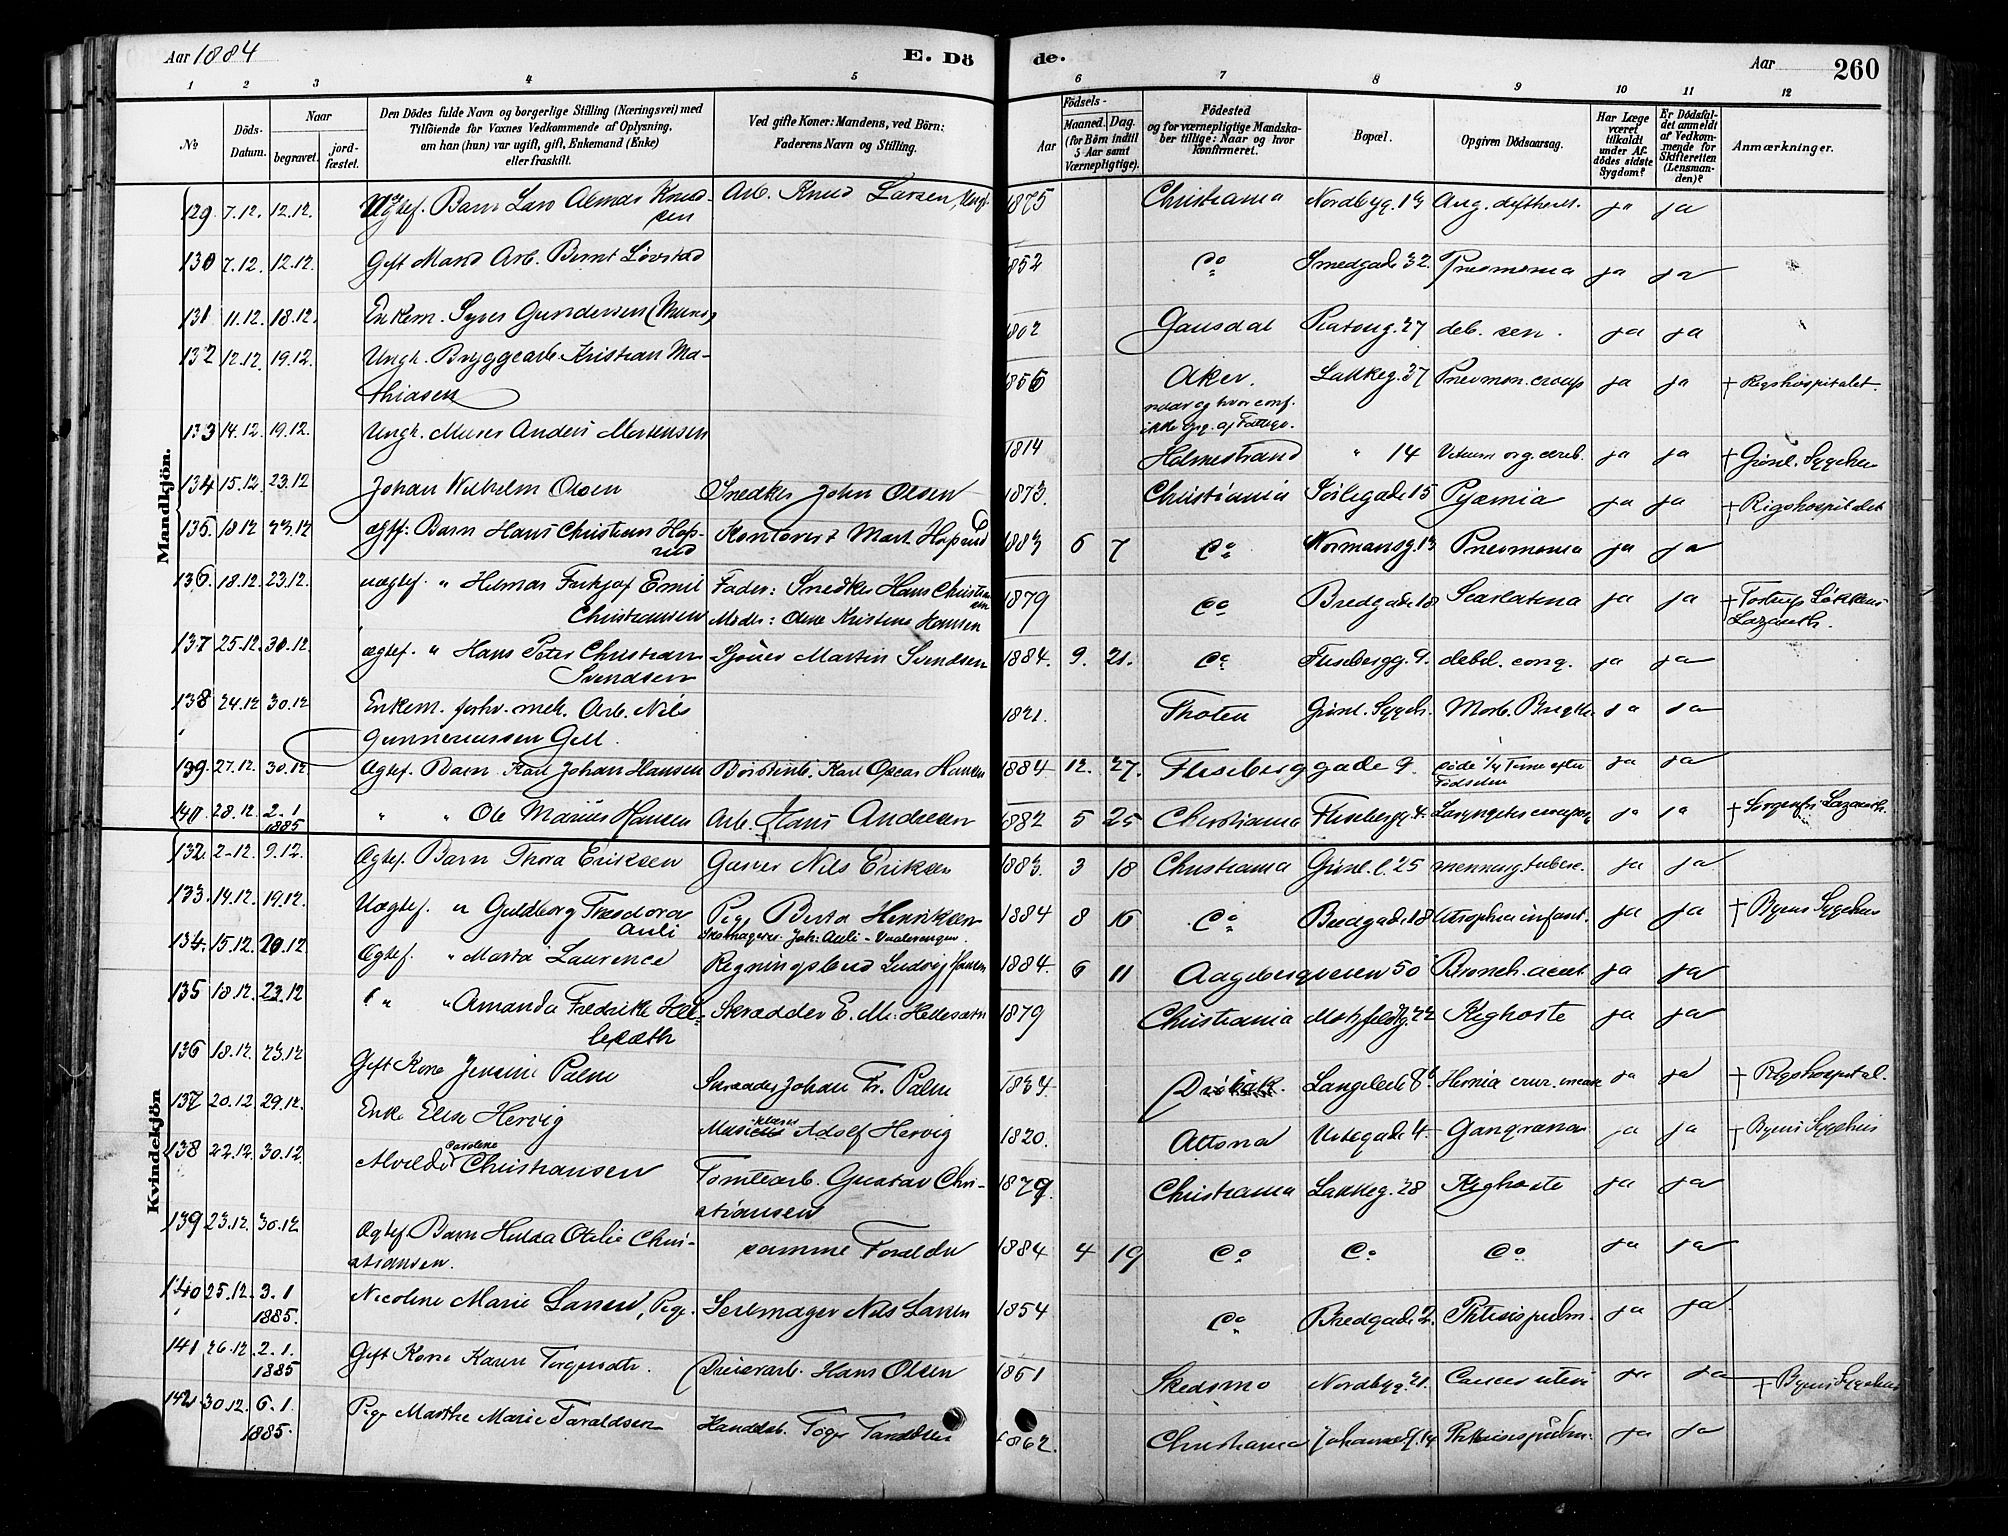 Aar 1884
E. Dö
de.
Aar
260
1 2 3 4 5 6 7 8 9 10 11 12
№
Döds-Datum.
Naar
begravet.
jord-fæstet.
Den Dödes fulde Navn og borgerlige Stilling (Næringsvei) med
Tilföiende for Voxnes Vedkommende af Oplysning,
om han (hun) var ugift, gift, Enkemand (Enke)
eller fraskilt.
Ved gifte Koner: Mandens, ved Börn:
Faderens Navn og Stilling.
Födsels-
Aar
Maaned. Dag.
(for Börn indtil
5 Aar samt
Værnepligtige).
Födested
og for værnepligtige Mandska-
ber tillige: Naar og hvor
konfirmeret.
Bopæl.
Opgiven Dödsaarsag.
Har Læge
været
tilkaldt
under Af-
dödes sidste
Sygdom?
Er Dödsfal-
det anmeldt
af Vedkom-
mende for
Skifteretten
(Lensman-
den)?
Anmærkninger.
Mandkjön.
129 7.12. 12.12. Barn Lars Knud- Arb. Knud Larsen, 1875 Christiania Nordbyg. 13 Ang. ja ja
sen
130 7.12. 12.12. Gift Mand Arb. Bernt Lövstad 1852 Do Smedgade 32. Pneumonia ja ja
131 11.12. 18.12. Enkem. Syver Gundersen 1802 Gausdal 27 deb. sen. ja ja
132 12.12 19.12. Ungk. Bryggearb. Kristian Ma- 1856 Aker. Lakkeg. 37 Pneumon. croup ja ja † Rigshospitalet
thiasen
naar og hvor conf.
ikke
133 14.12. 19.12. Ungk. Murer Anders Mortensen 1814 Holmestrand " 14 Vitium org. cereb. ja ja † Grünl. Sygehus
134 15.12. 23.12 Johan Wilhelm Olsen Snedker John Olsen 1873. Christiania 15 Pyæmia ja ja † Rigshospitalet
135. 18.12 23.12 ægtef. Barn Hans Christian Kontorist Mart. 1883 6 7 Do Normansg. 13 Pneumonia ja ja
136. 18.12. 23.12. uægtef. " Hilmar Emil Fader: Snedker Hans Christian- 1879 Do Bredgade 18 Scarlatina ja ja † Lökkens
Christiansen Moder: Kristine Hansen Lazareth.
137 25.12. 30.12. ægtef. " Hans Peter Christian Martin Svendsen 1884. 9. 21. Do Fliseberg. 9. debil. cong. ja ja
Svendsen
138 24.12. 30.12 Enkem. forhv. mek. Arb. Nils 1821. Thoten Grünl. Sygeh. Morb. Brigthi ja ja
Gunneriussen
139. 27.12. 30.12 Ægtef. Barn Karl Johan Hansen Karl Oscar Hansen 1884 12. 27. Fliseberggade 9. Time efter ja ja
Födselen
140 28.12. 2.1 " " Ole Marius Hansen Arb. Hans Andersen 1882 5 25 Christiania Flisebergg. 4. ja ja † Lazareth.
1885
Kvindekjön
132. 2.12. 9.12. Ægtef. Barn Thora Eriksen Nils Eriksen 1883. 3 18 Christiania Grünl. l. 25 mening. tuberc. ja ja
133. 14.12. 19.12. Uægtef. " Guldborg Theodora Pige Berta Henriksen 1884 8 16 Do Bredgade 18 Atrophia infant. ja ja † Byens Sygehus
Auli Skomager Joh: Auli - Vaalerengen.
134. 15.12. 20.12 Ægtef. " Marta Laurence Regningsbud Ludvig Hansen 1884. 6 11 Aagebergveien 50 Bronch. acut. ja ja
135 18.12. 23.12 " " Amanda Fredrikke Hel- Skrædder E. M. 1879 Christiania Motzfeldtg. 22 Kighoste ja ja
136 18.12. 23.12 Gift Kone Jensine Palm Skrædder Johan Fr. Palm 1834. Dröbak. Langeleds 8 Hernia crur. ja ja † Rigshospital.
137 20.12 29.12. Enke Elise Hervig Adolf Hervig 1820. Altona Urtegade 4 Gangræna ja ja † Byens Sygehus
138 22.12. 30.12. Alvilde Caroline Christiansen Tomtearb. Gustav Chri- 1879. Christiania Lakkeg. 28 Kighoste ja ja
stiansen
139 23.12. 30.12 Ægtef. Barn Hulda Otilie Chri- samme Foreldre 1884 4 19 Do Do Do ja ja
stiansen.
140 25.12. 3.1 Nicoline Marie Larsen, Pige. Seilmager Nils Larsen 1854 Do Bredgade 2. Phtisis pulm. ja ja.
1885.
141 26.12. 2.1 Gift Kone Karen Torgersdtr. Dreierarb. Hans Olsen 1851 Skedsmo Nordbyg. 21. Cancer uteri ja ja † Byens Sygehus
1885
142 30.12. 6.1 Pige Marthe Marie Taraldsen 1862. Christiania 14 Phtisis pulm. ja ja
1885.